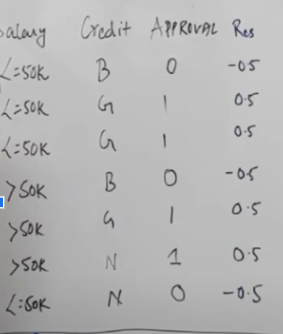 Salary Credit APPROVAL Res
<=50K B 0 -0.5
<=50K G 1 0.5
<=50K G 1 0.5
>50K B 0 -0.5
>50K G 1 0.5
>50K N 1 0.5
<=50K N 0 -0.5